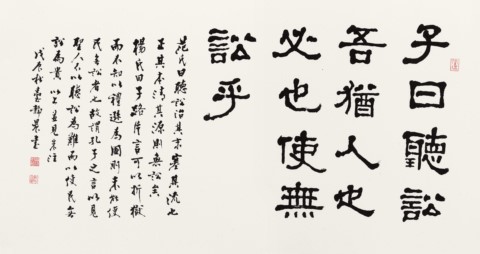 子曰聽訟
吾猶人也
必也使無
訟乎
范氏曰聽訟治其末塞其流也
正其本清其源則無訟矣
楊氏曰子路片言可以折獄
而不知以禮遜為國則未能使
民無訟者也故孔子之言以見
聖人不以聽訟為難而以使民無
訟為貴 以上並見集注
戊辰秋 書